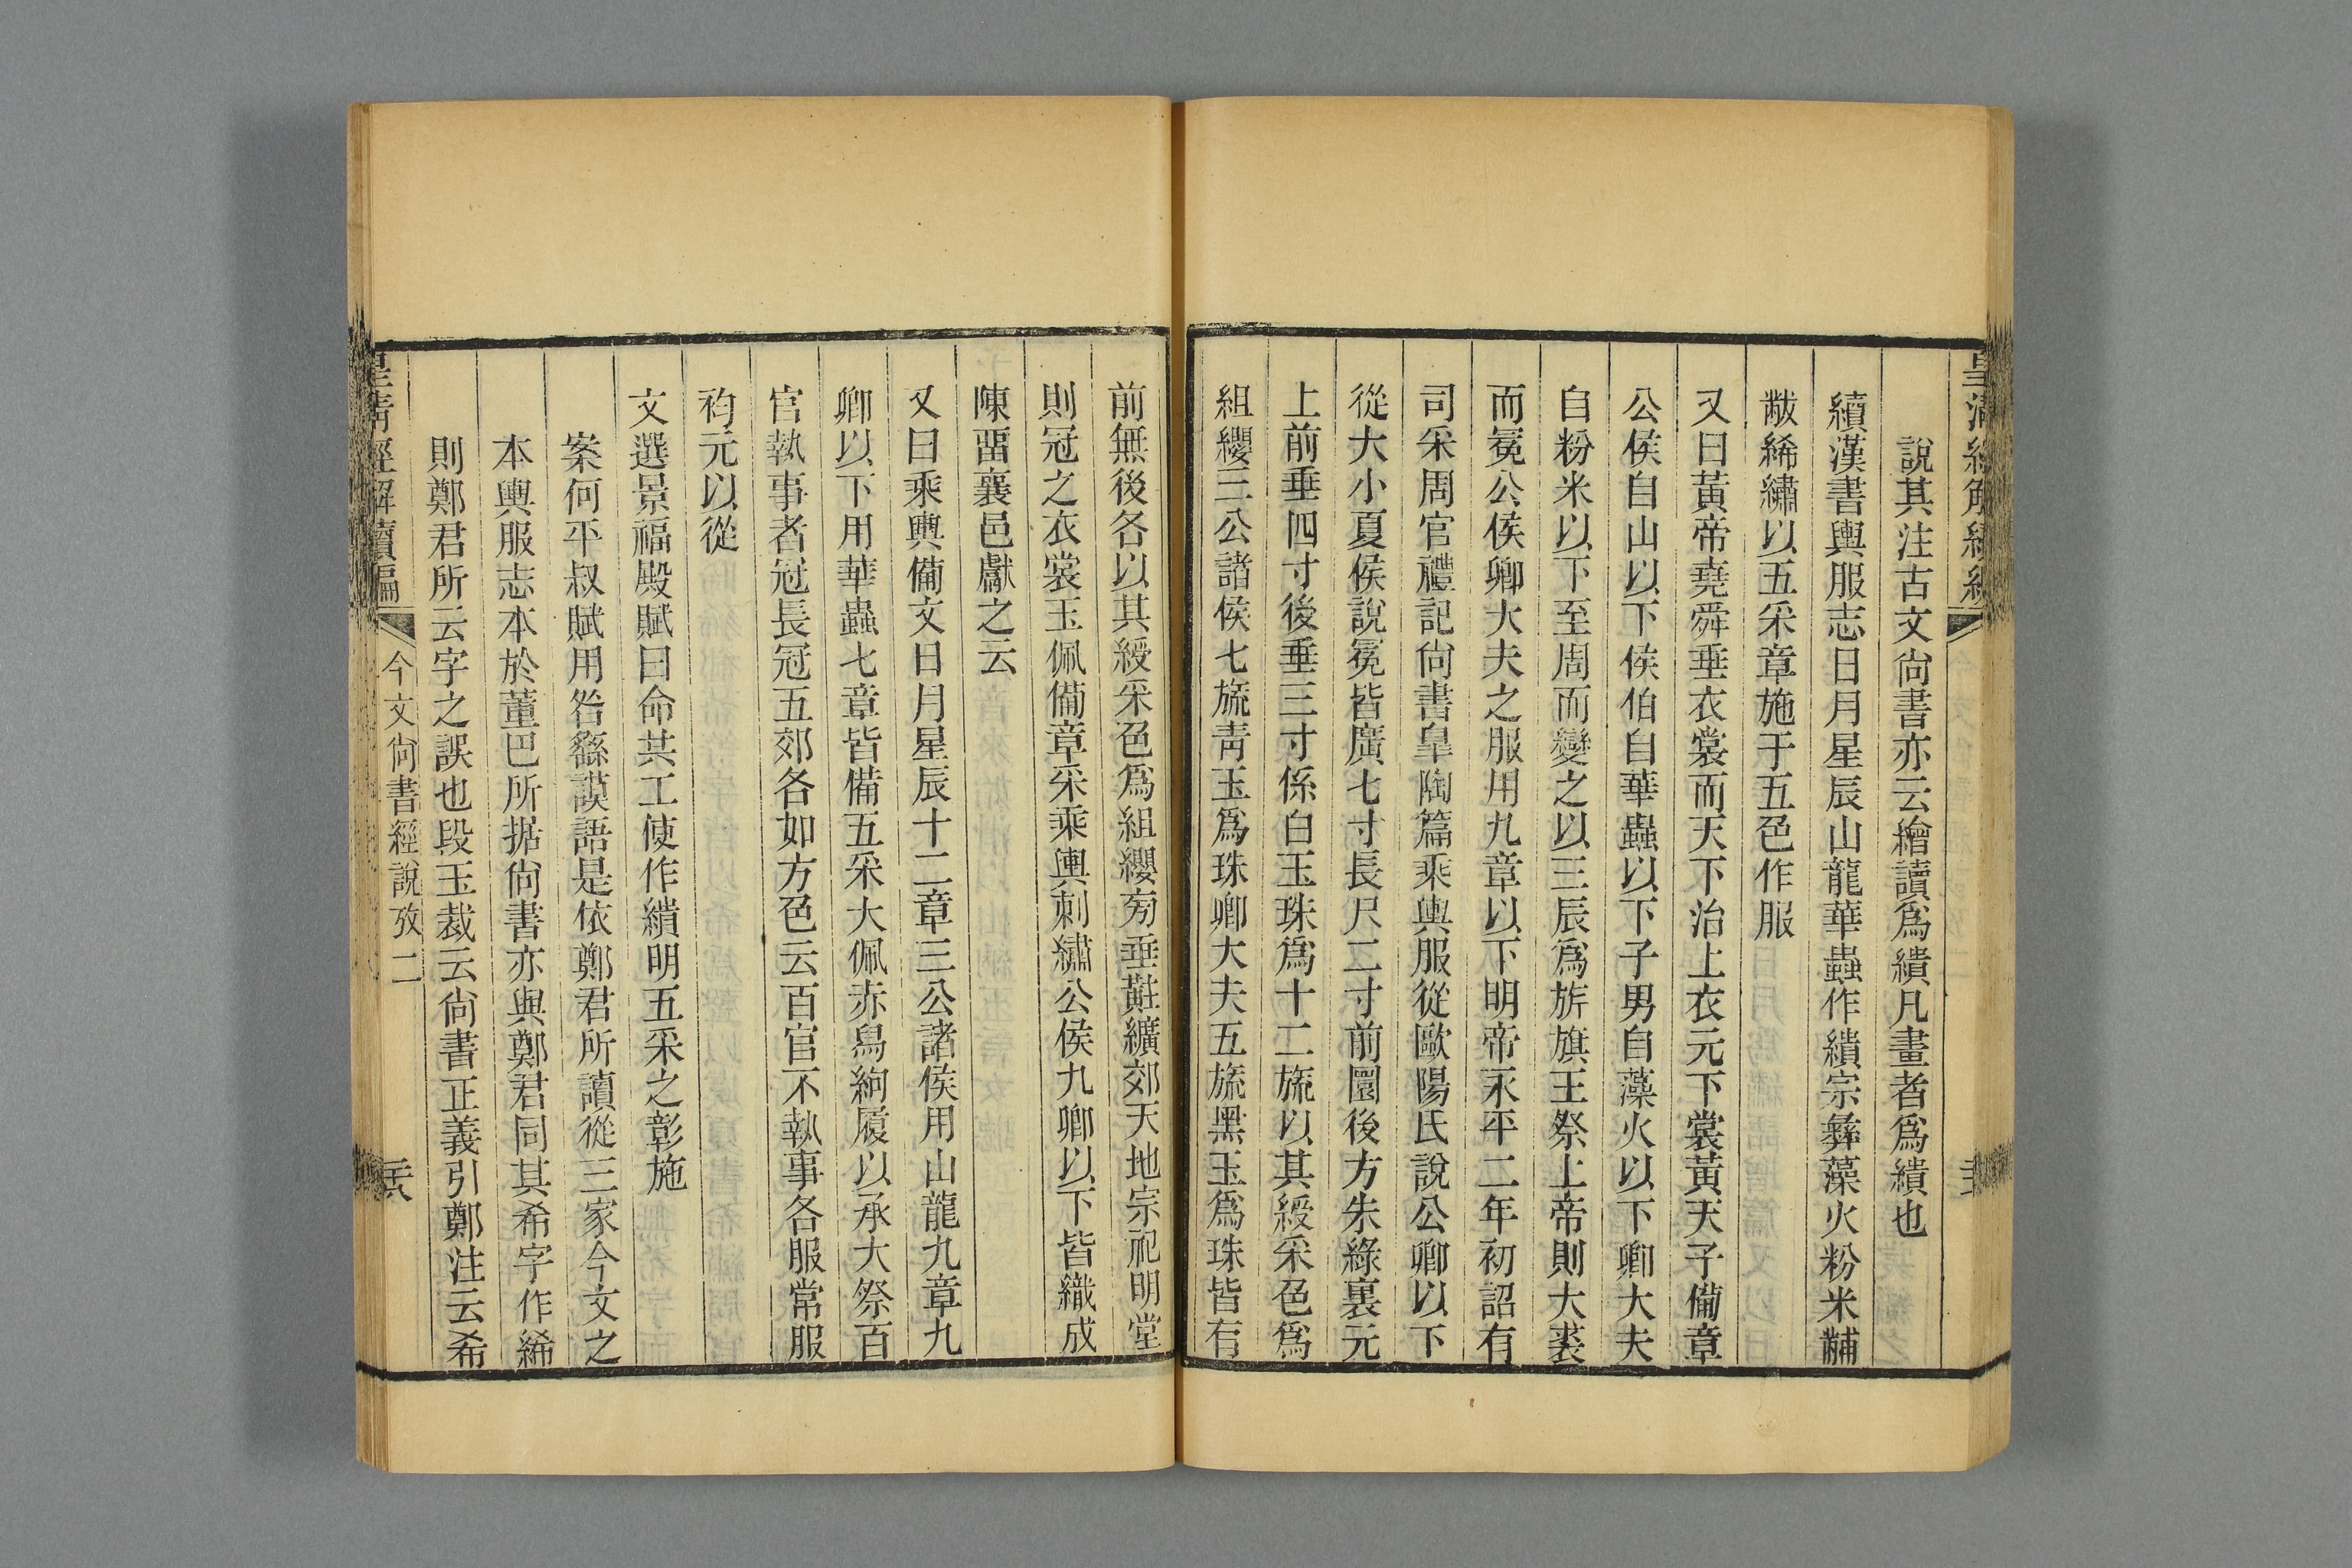 說其注古文尙書亦云繪讀爲繢凡畫者爲繢也
續漢書輿服志日月星辰山龍華蟲作繢宗彝藻火粉米黼
黻絺繡以五采章施于五色作服
又曰黃帝堯舜垂衣裳而天下治上衣元下裳黃天子備章
公侯自山以下侯伯自華蟲以下子男自藻火以下卿大夫
自粉米以下至周而變之以三辰爲旂旗王祭上帝則大裘
而冕公侯卿大夫之服用九章以下明帝永平二年初詔有
司采周官禮記尙書皐陶篇乘輿服從歐陽氏說公卿以下
從大小夏侯說冕皆廣七寸長尺二寸前圜後方朱綠裏元
上前垂四寸後垂三寸係白玉珠爲十二旒以其綬采色爲
組纓三公諸侯七旒靑玉爲珠卿大夫五旒黑玉爲珠皆有
前無後各以其綬采色爲組纓旁垂黈纊郊天地宗祀明堂
則冠之衣裳玉佩備章采乘輿刺繡公侯九卿以下皆織成
陳畱襄邑獻之云
又曰乘輿備文日月星辰十二章三公諸侯用山龍九章九
卿以下用華蟲七章皆備五采大佩赤舃絇履以承大祭百
官執事者冠長冠五郊各如方色云百官不執事各服常服
袀元以從
文選景福殿賦曰命共工使作繢明五采之彰施
案何平叔賦用咎繇謨語是依鄭君所讀從三家今文之
本輿服志本於董巴所据尙書亦與鄭君同其希字作絺
則鄭君所云字之誤也段玉裁云尙書正義引鄭注云希
皇淸經解續編
今文尙書經說攷二